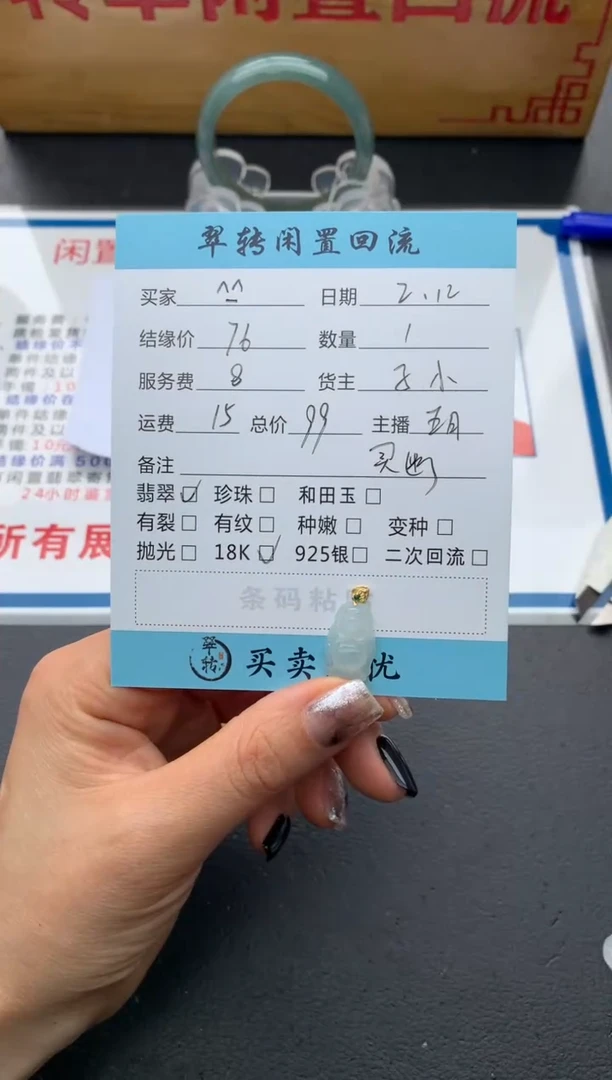 翠转闲置回流
闲置
买家 ^^ 日期 2.12
结缘价 76 数量 1
服务费 8 货主 子小
运费 15 总价 99 主播 五月
备注 买断
翡翠☑ 珍珠□ 和田玉□
有裂□ 有纹□ 种嫩□ 变种□
抛光□ 18K☑ 925银□ 二次回流□
条码粘
翠转 买卖 优
结缘价在
手镯 10元
结缘价满 500
24小时鉴
所有展